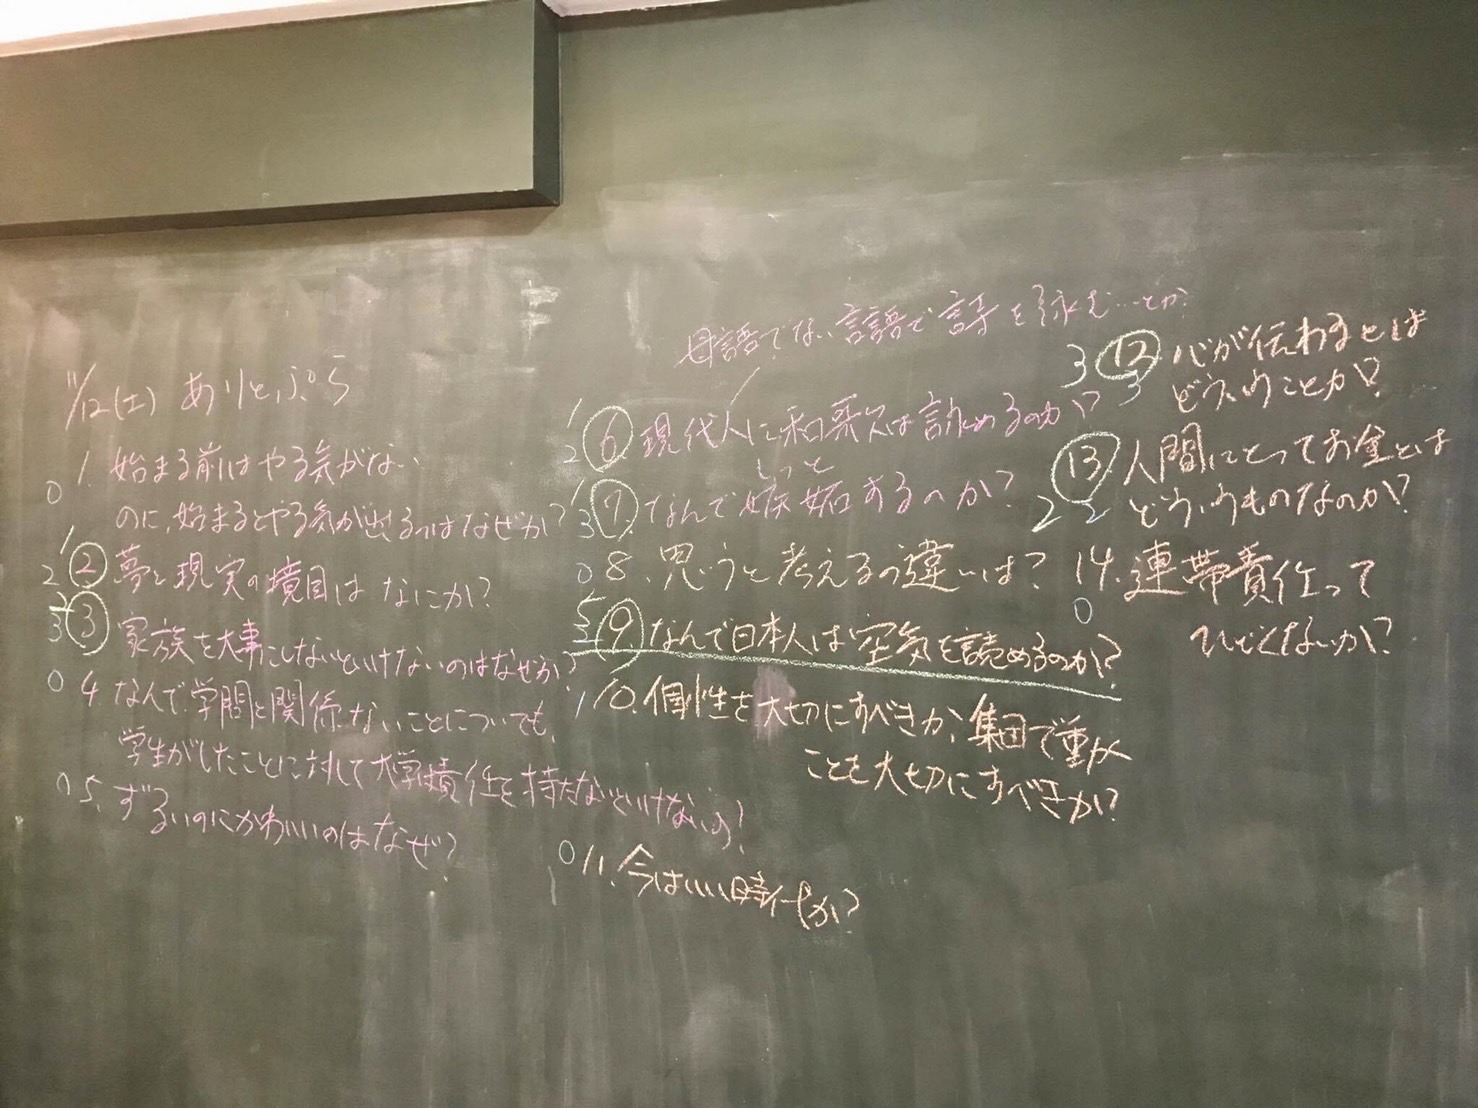 11/12(土) ありとぷら
0 1. 始まる前はやる気がない
のに、始まるとやる気が出るのはなぜか?
1 2 ② 夢と現実の境目はなにか?
2 3 ③ 家族を大事にしないといけないのはなぜか?
0 4. なんで学問と関係ないことについても、
学生がしたことに対して大学責任を持たないといけないの?
0 5. ずるいのにかわいいのはなぜ?
母語でない言語で詩を詠む…とか?
1 2 ⑥ 現代人に和歌は詠めるのか?
しっと
1 3 ⑦ なんで嫉妬するのか?
0 8. 思うと考えるの違いは?
5 ⑨ なんで日本人は空気を読めるのか?
1 10. 個性を大切にすべきか、集団で動く
ことを大切にすべきか?
0 11. 今はいい時代か?
3 3 ⑫ 心が伝わるとは
どういうことか?
2 2 ⑬ 人間にとってお金とは
どういうものなのか?
0 14. 連帯責任って
ひどくないか?